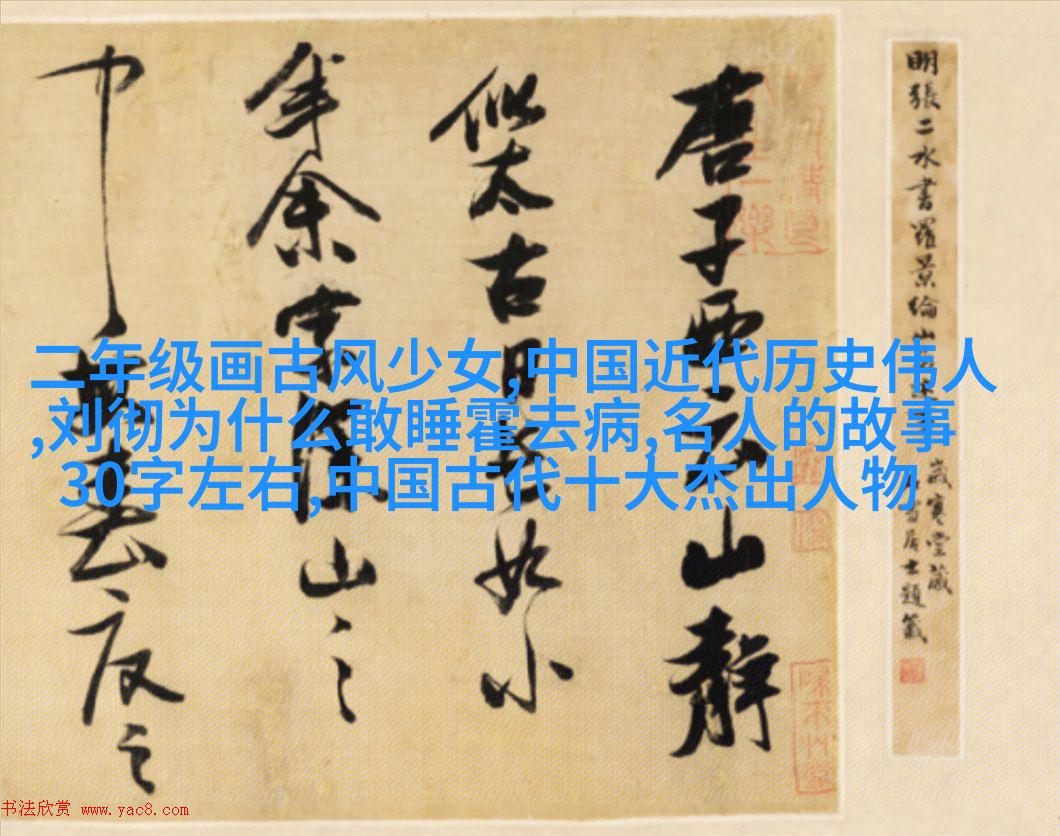 二年级画古风少女,中国近代历史伟人
,刘彻为什么敢睡霍去病,名人的故事
30字左右,中国古代十大杰出人物
唐子西云山静
似太古日長如小
年余家深山之
中
春夏之
明張二水書羅景綸山
歲寒堂藏
居士題籤
书法欣赏 www.yac8.com